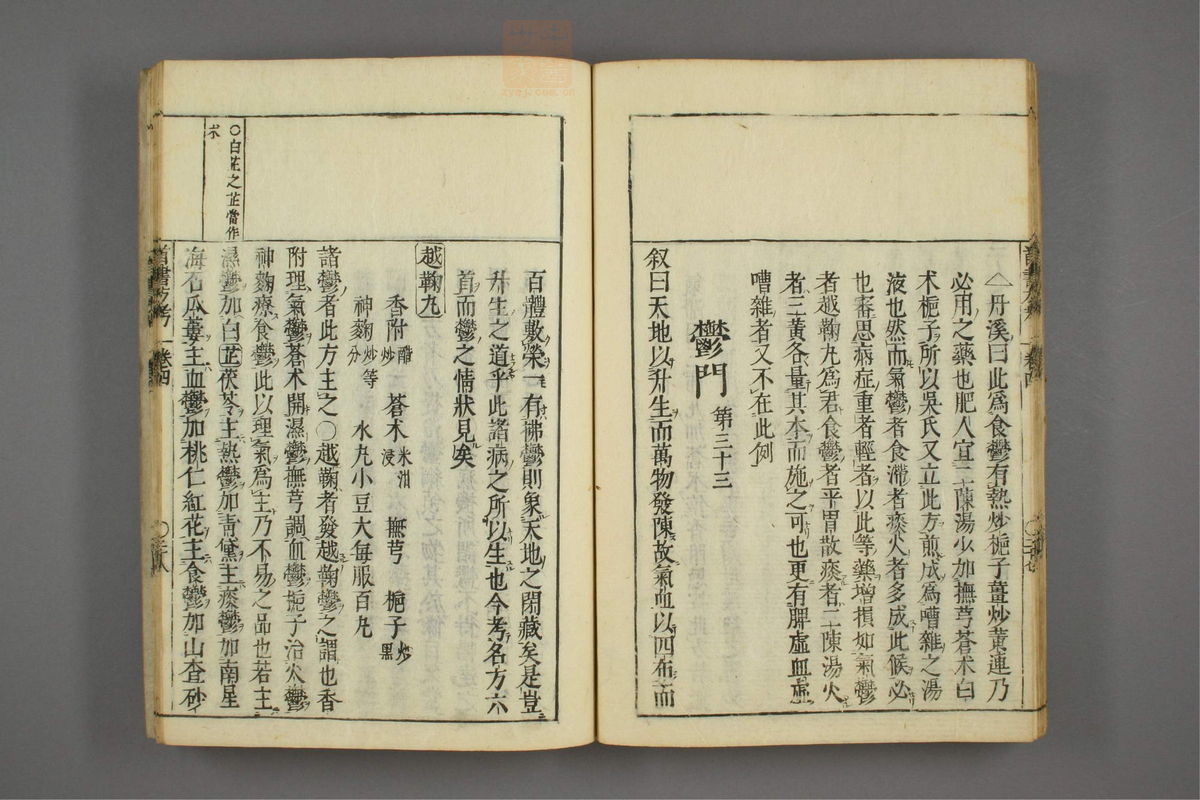 △丹溪曰此為食鬱有熱炒梔子薑炒黃連乃
必用之藥也肥人宜二陳湯少加撫芎蒼朮白
朮梔子所以吳氏又立此方煎成為嘈雜之湯
液也然而氣鬱者食滯者痰火者多成此候必
也審思病症重者輕者以此等藥增損如氣鬱
者越鞠丸為君食鬱者平胃散痰者二陳湯火
者三黃各量其本而施之可也更有脾虛血虛
嘈雜者又不在此例
鬱門 第三十三
叙曰天地以升生而萬物發陳故氣血以四布而
百體敷榮一有怫鬱則象天地之閉藏矣是豈
升生之道乎此諸病之所以生也今考名方六
首而鬱之情狀見矣
越鞠丸
香附醋炒 蒼朮米泔浸 撫芎 梔子炒黑
神麴炒等分 水丸小豆大每服百丸
諸鬱者此方主之○越鞠者發越鞠鬱之謂也香
附理氣鬱蒼朮開濕鬱撫芎調血鬱梔子治火鬱
神麴療食鬱此以理氣為主乃不易之品也若主
濕鬱加白芷茯苓主熱鬱加青黛主痰鬱加南星
海石瓜蔞主血鬱加桃仁紅花主食鬱加山查砂
○白芷之芷當作
朮
卷四